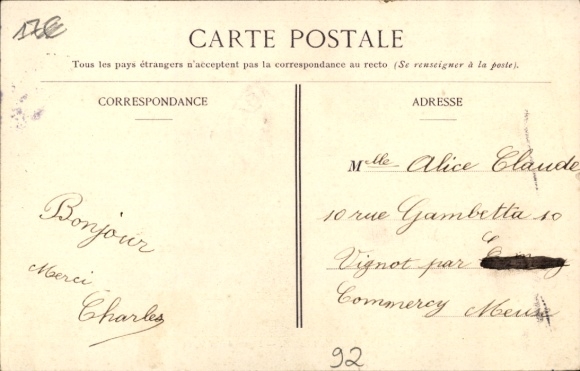 CARTE POSTALE
Tous les pays étrangers n'acceptent pas la correspondance au recto (Se renseigner à la poste).
CORRESPONDANCE
Bonjour
Merci
Charles
ADRESSE
Mlle Alice Claude
10 rue Gambetta 10
Vignot par
Commercy Meuse
92